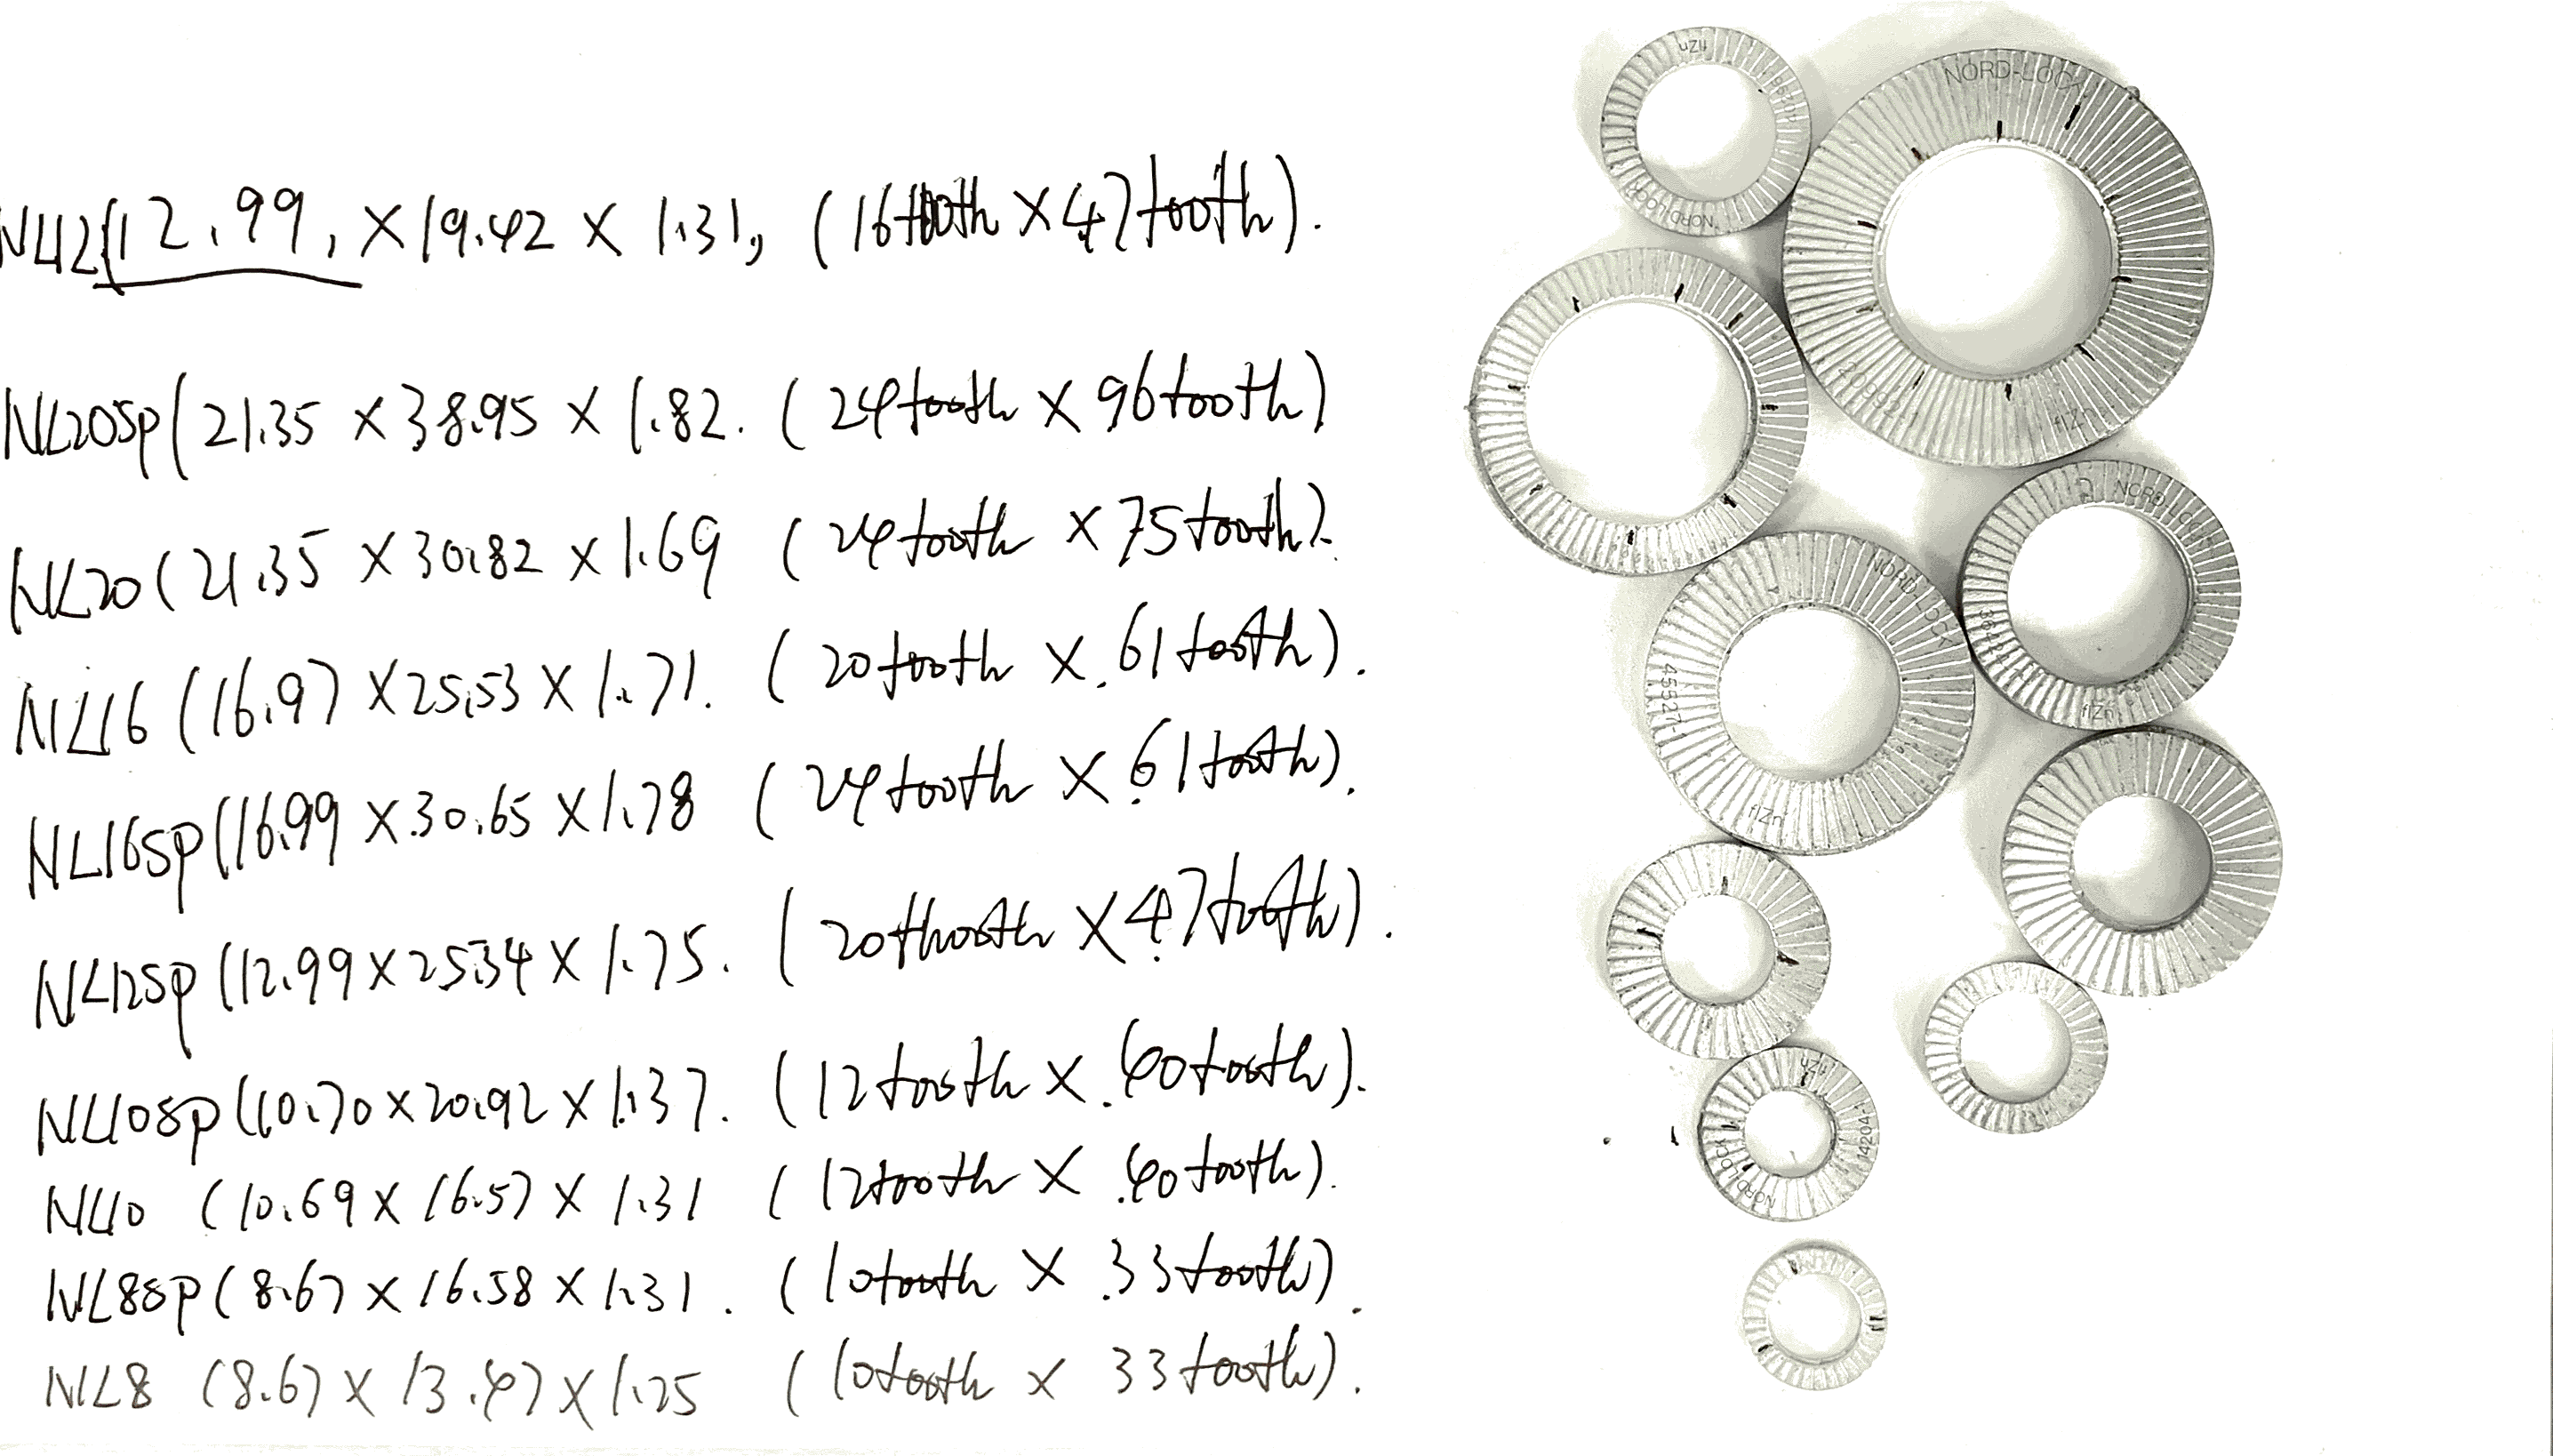 NL12(12.99, × 19.42 × 1.31, (16tooth × 47tooth).
NL20SP(21.35 × 38.95 × 1.82. (24tooth × 96tooth)
NL20(21.35 × 30.82 × 1.69 (24tooth × 75tooth).
NL16 (16.97 × 25.53 × 1.71. (20tooth × 61tooth).
NL16SP(16.99 × 30.65 × 1.78 (24tooth × 61tooth).
NL12SP(12.99 × 25.34 × 1.75. (20thooth × 47tooth).
NL10SP(10.70 × 20.92 × 1.37. (12tooth × 40tooth).
NL10 (10.69 × 16.57 × 1.31 (12tooth × 40tooth).
NL8SP(8.67 × 16.58 × 1.31. (10tooth × 33tooth).
NL8 (8.67 × 13.47 × 1.25 (10tooth × 33tooth).
flZn
NORD-LOCK
NORD-LOCK
20992-1
flZn
NORD-LOCK
flZn
NORD-LOCK
45527-1
flZn
flZn
NORD-LOCK